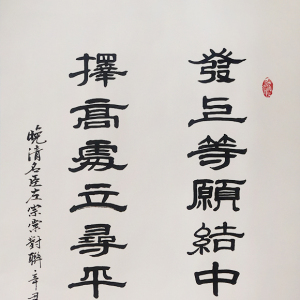 發上等願結中
擇高處立尋平
晚清名臣左宗棠對聯辛丑